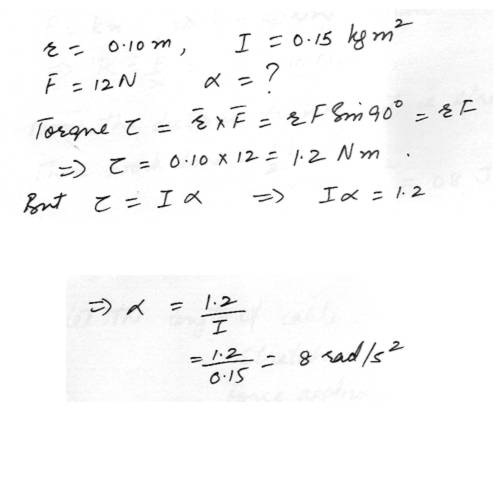 r = 0.10 m, I = 0.15 kg m²
F = 12 N α = ?
Torque τ = r̄ × F̄ = r F Sin 90° = r F
=> τ = 0.10 × 12 = 1.2 N m .
But τ = I α => I α = 1.2
=> α = 1.2 / I
= 1.2 / 0.15 = 8 rad/s²